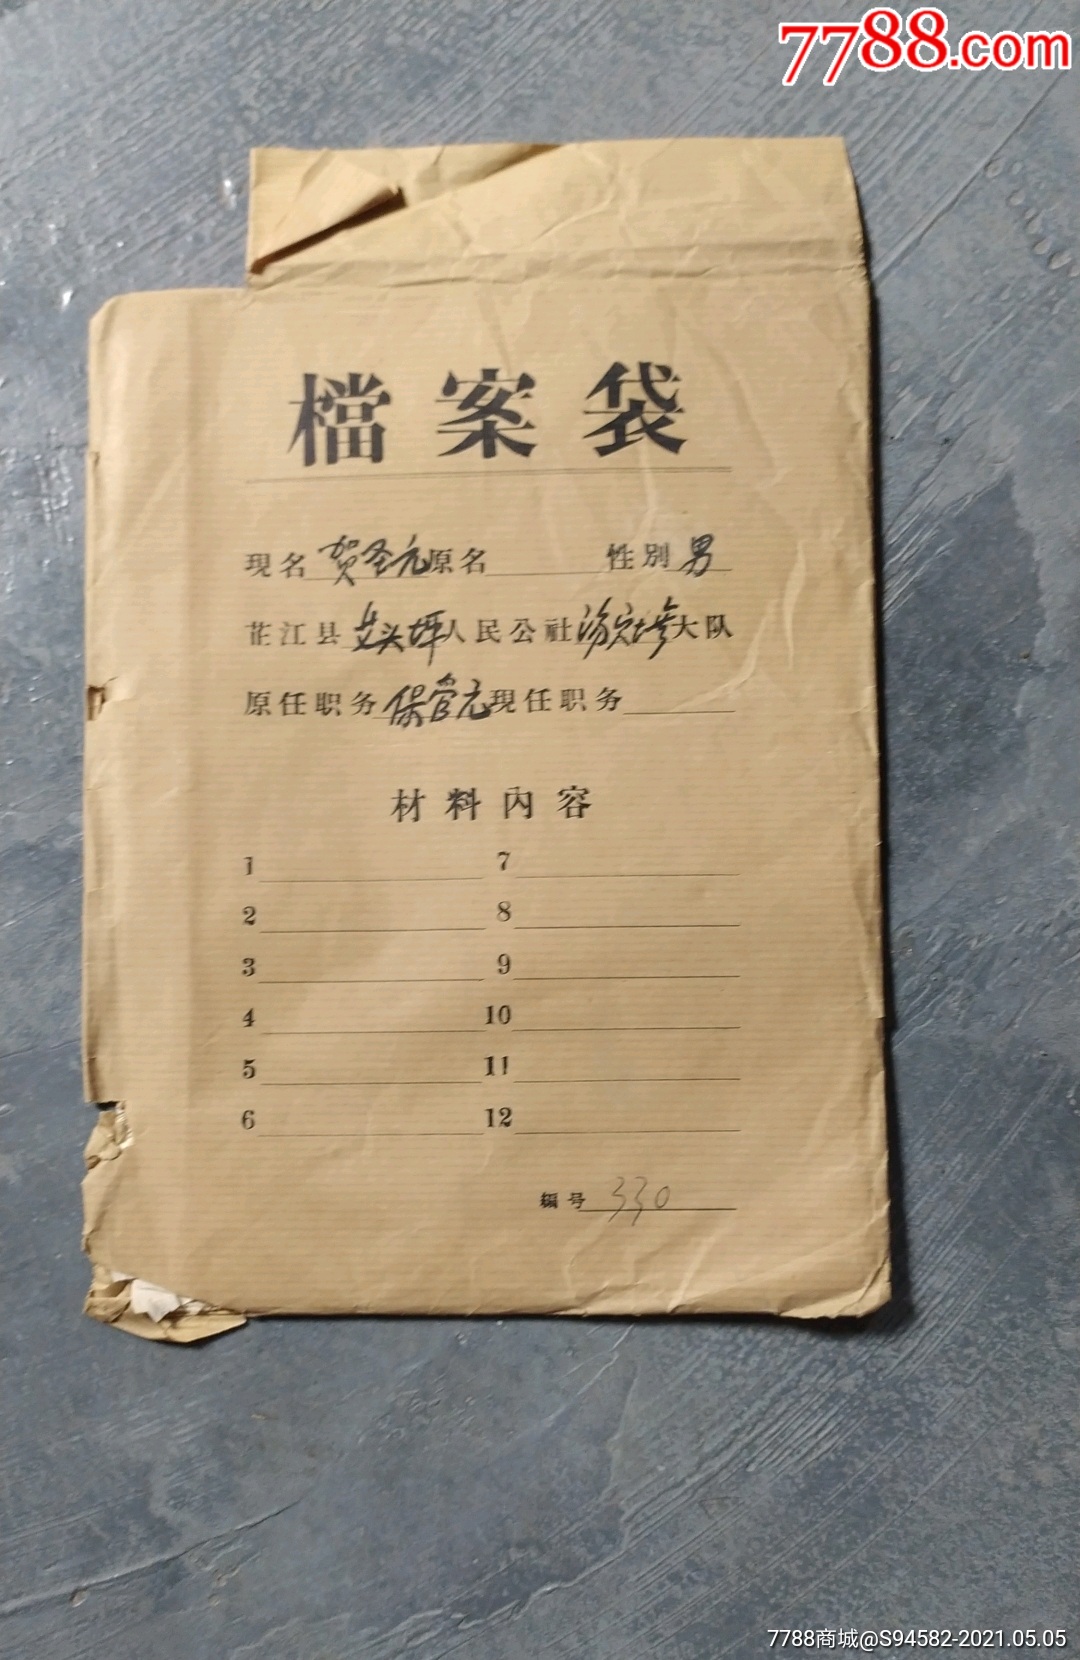 7788.com
檔案袋
現名 贺圣元 原名 性別 男
芷江县 艾头坪 人民公社 大队
原任职务 保管元 現任职务
材料內容
1 7
2 8
3 9
4 10
5 11
6 12
編号 330
7788商城@S94582-2021.05.05